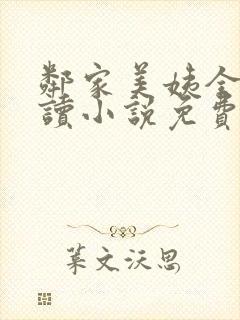 鄰家美姨全
讀小說免費
葉文沃思